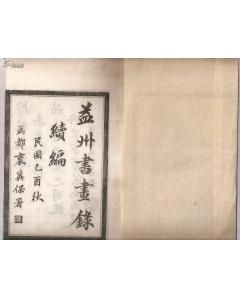 益州書畫錄
續編
民國乙酉秋
成都裴其保署